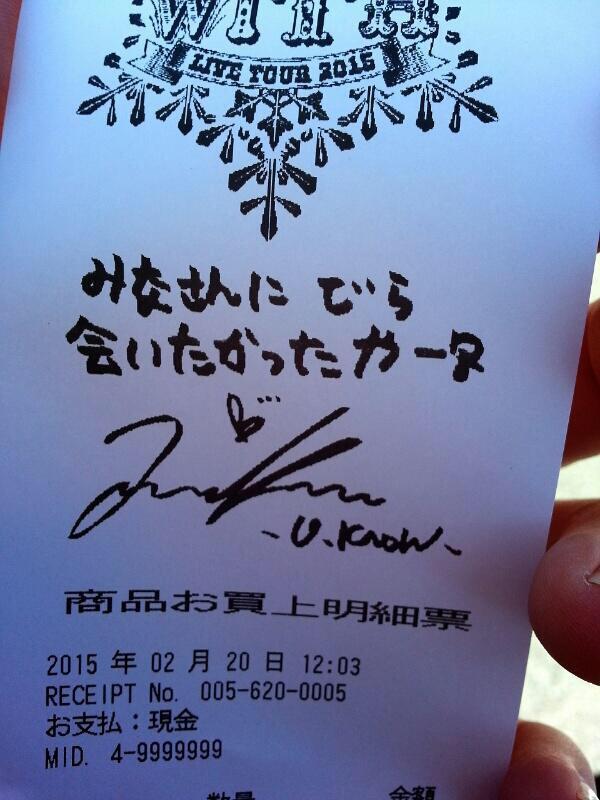 WITH
LIVE TOUR 2015
みなさんに でら
会いたかったカータ
-U.Know-
商品お買上明細票
2015 年 02 月 20 日 12:03
RECEIPT No. 005-620-0005
お支払：現金
MID. 4-9999999
数量 金額